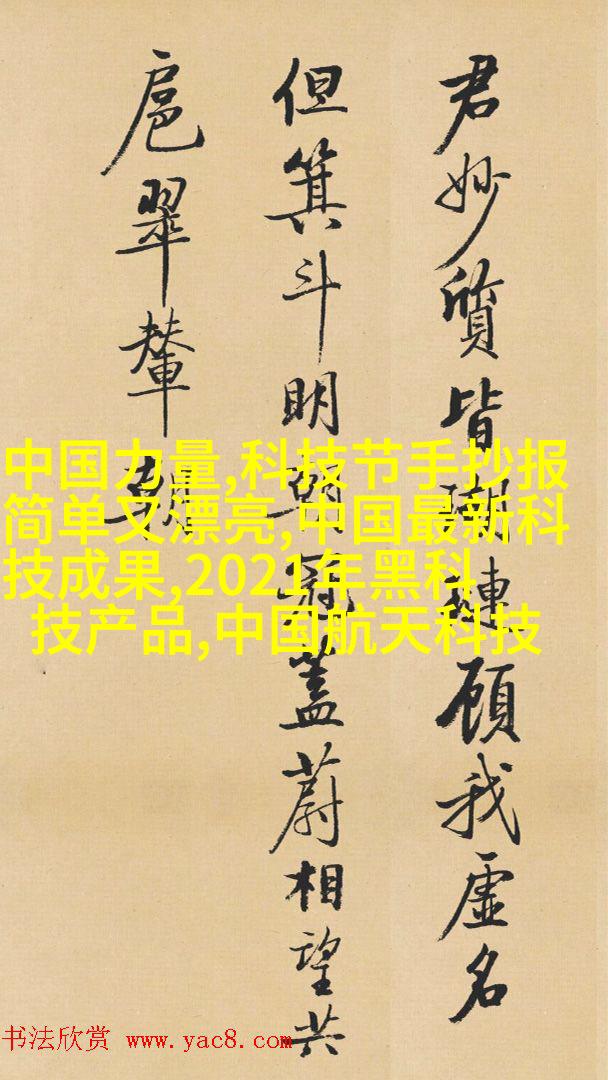 君妙質皆瑚璉顧我虛名
但箕斗明朝冠蓋蔚相望共
扈翠輦朝
中国力量,科技节手抄报
简单又漂亮,中国最新科
技成果,2021年黑科
技产品,中国航天科技
书法欣赏 www.yac8.com